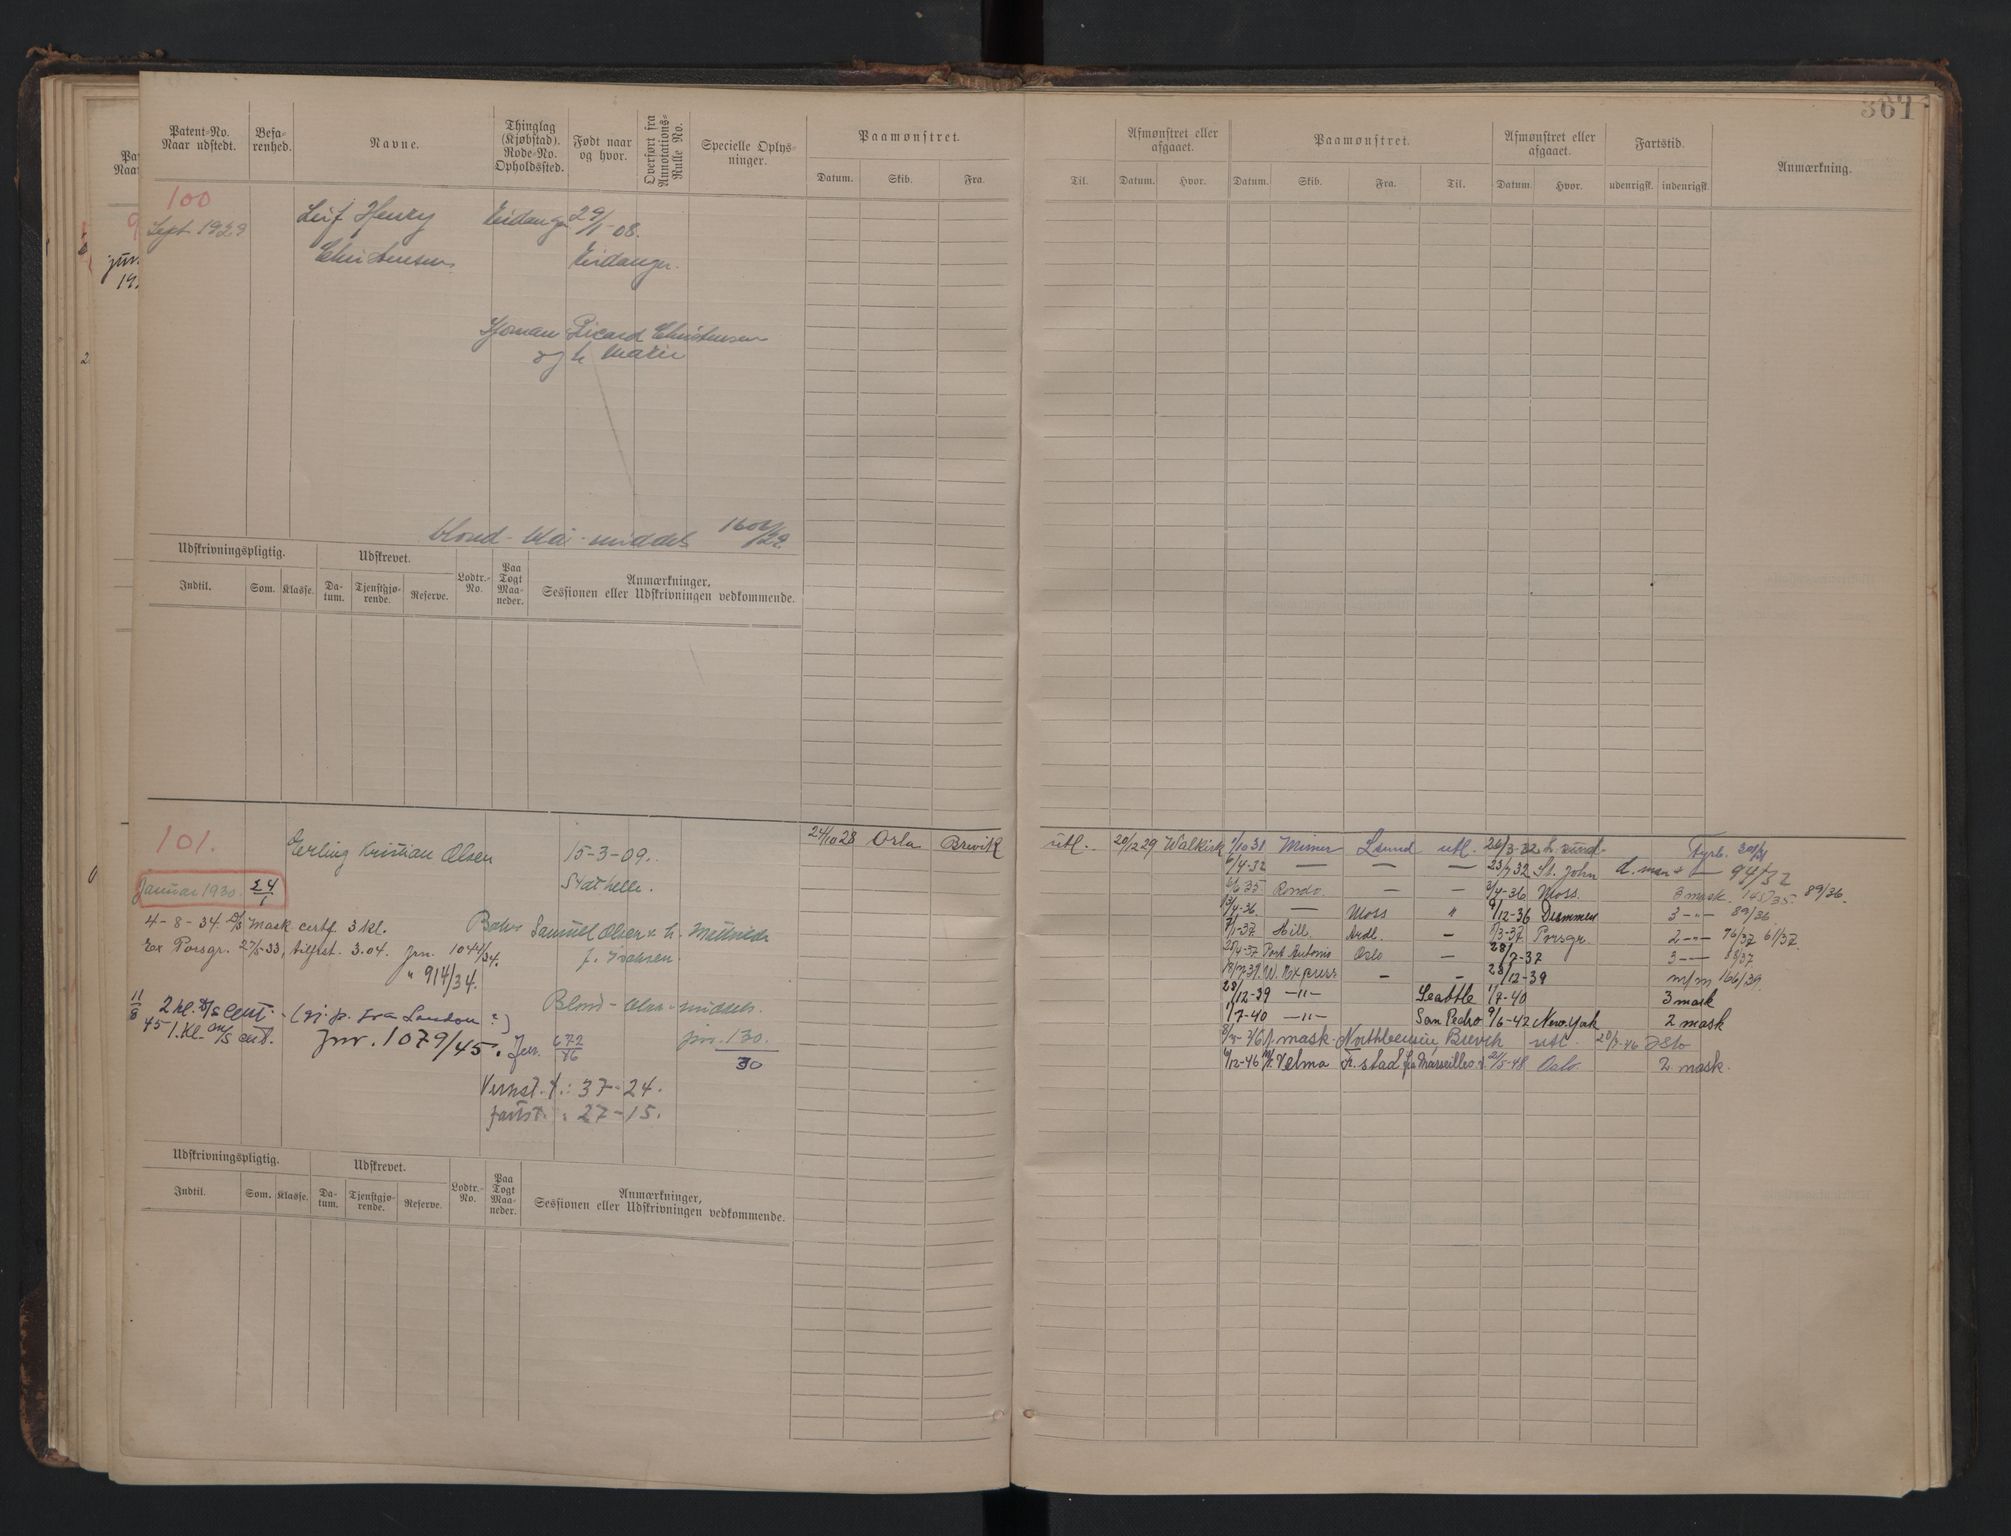 367
Patent-No. Naar udstedt.
Befarenhed.
Navne.
Thinglag (Kjøbstad). Rode-No. Opholdssted.
Født naar og hvor.
Overført fra Annotations-Rulle No.
Specielle Oplysninger.
Paamønstret.
Datum. Skib. Fra.
Til.
Afmønstret eller afgaaet.
Datum. Hvor.
Paamønstret.
Datum. Skib. Fra. Til.
Afmønstret eller afgaaet.
Datum. Hvor.
Fartstid.
udenrigsk. indenrigsk.
Anmærkning.
100
Sept. 1929 Leif Henry Eidanger 29/1-08.
Christensen Eidanger.
Ricard Christensen
og h. Marie
blond - blå - middels
Udskrivningspligtig. Udskrevet. Lodtr.-No. Paa Togt Maaneder. Anmærkninger, Sessionen eller Udskrivningen vedkommende.
Indtil. Som. Klasse. Datum. Tjenstgjørende. Reserve.
101.
Erling Kristian Olsen 15-3-09.
Januar 1930 24/1 Stathelle.
4-8-34 D/S Mask certf. 3 kl. Samuel Olsen & h.
Ex Porsgr. 27/5-33, tilfrst. 3.04. Jrn. 1044/34. f. Isaksen.
" 914/34.
Blond - blaa - middels.
11/8 2 kl. D/S Cert. (gj. p. fra London ?)
45 1. Kl. D/S cert. Jnr. 1079/45. Jnr. 672/46 jnr. 130/30
Vernst. t.: 37-24.
fartst. : 27-15.
24/10 28 Orla Brevik utl. 20/2 29 Walkirk
1/10 31 Mimer L.sund utl. 26/3-32 L. sund Fyrb.
6/4-32 — — — 23/7 32 St. John d. man + — 94/32
35 Rondo — — 2/4-36 Moss 3 mask. 145/35. 89/36.
3/4-36. — Moss " 9/12-36 Drammen 3 -"- 89/36
7/1-37 Hill. Ardl. — 1/3-37 Porsgr. 2 -"- 76/37 61/37.
25/4-37 Port Antonio Oslo — 28/7-37 3 -"- 88/37
W. Express — — 28/12-39 m/m 166/39.
28/12-39 -"- Seattle 1/7-40 3 mask
1/7-40 -"- San Pedro 9/6-42 New York 2 mask
mask. Brevik utl. 20/7-46 Oslo
9/12-46 M/T Velma Fr.stad fra Marseilles 21/5-48 Oslo 2 mask.
Udskrivningspligtig. Udskrevet. Lodtr.-No. Paa Togt Maaneder. Anmærkninger, Sessionen eller Udskrivningen vedkommende.
Indtil. Som. Klasse. Datum. Tjenstgjørende. Reserve.